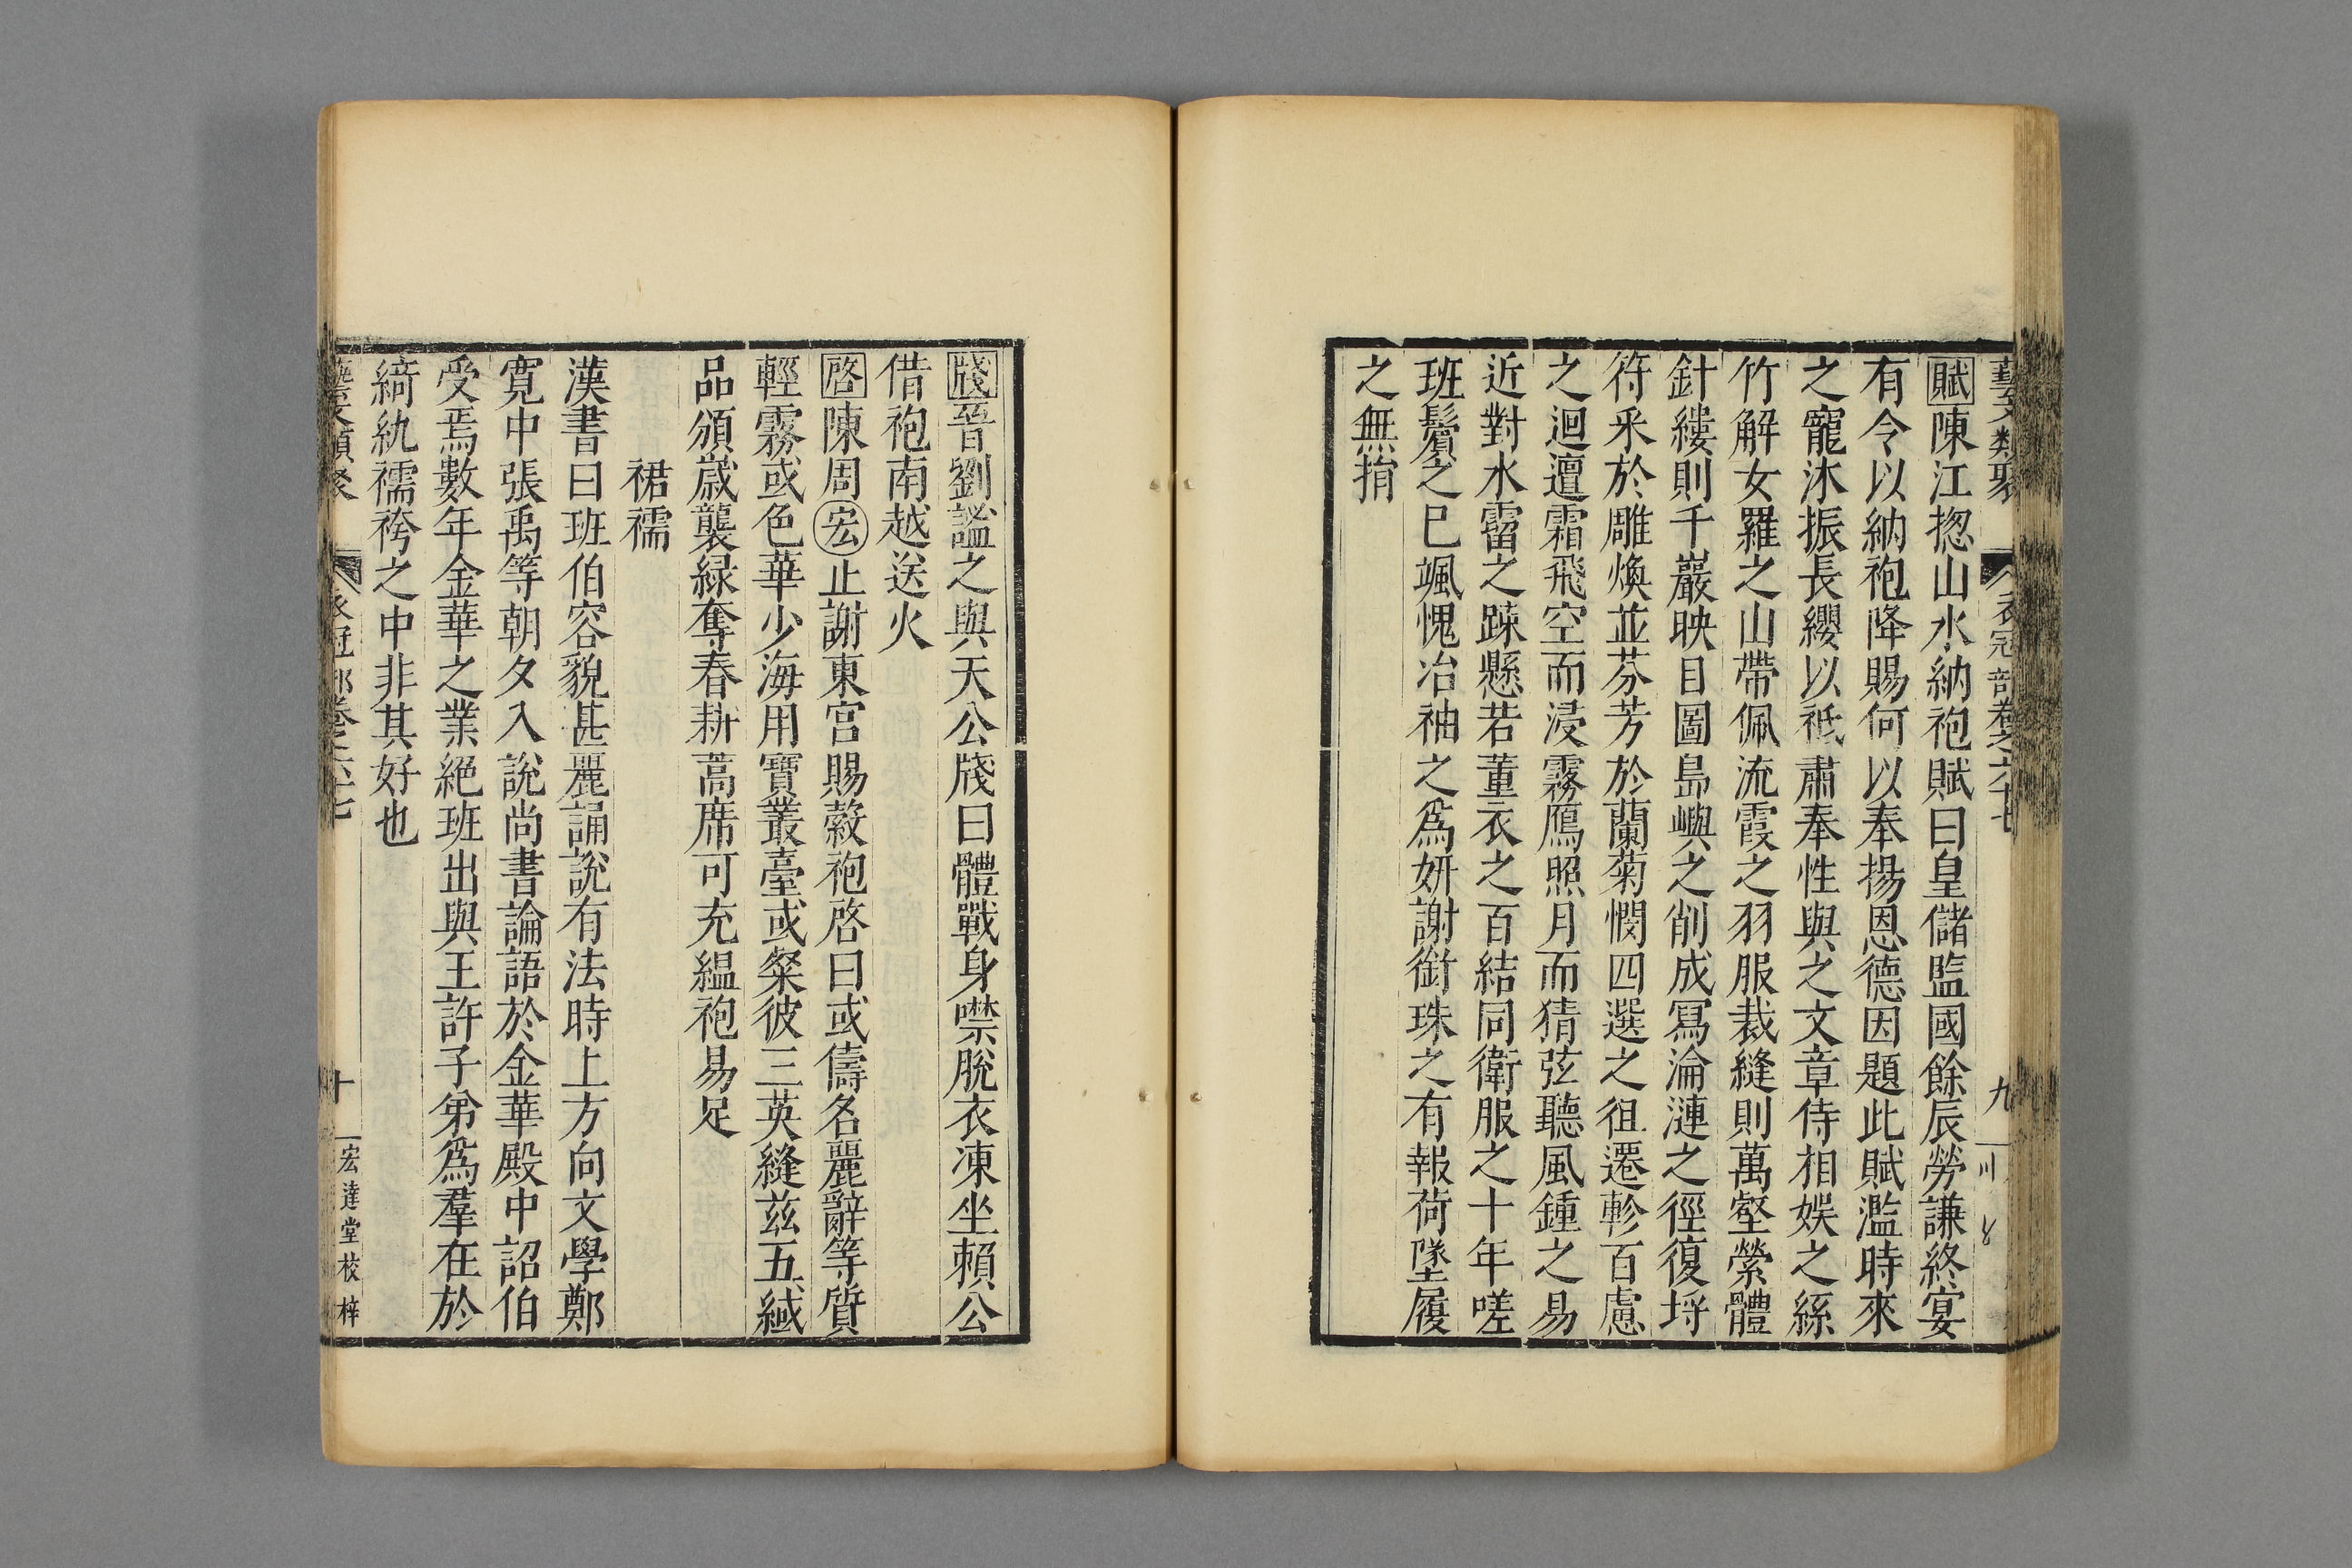 藝文類聚 衣冠部卷之六十七 九
賦陳江揔山水納袍賦曰皇儲監國餘辰勞謙終宴
有令以納袍降賜何以奉揚恩德因題此賦濫時來
之寵沐振長纓以祗肅奉性與之文章侍相娛之絲
竹解女羅之山帶佩流霞之羽服裁縫則萬壑縈體
針縷則千巖映目圖島嶼之削成寫淪漣之徑復埒
符釆於雕煥並芬芳於蘭菊憫四選之徂遷軫百慮
之迴邅霜飛空而浸霧鴈照月而猜弦聽風鍾之易
近對水霤之踈懸若董衣之百結同衛服之十年嗟
班鬢之巳颯愧冶袖之爲妍謝銜珠之有報荷墜履
之無捐
牋晉劉謐之與天公牋曰體戰身噤脫衣凍坐賴公
借袍南越送火
啓陳周宏止謝東宮賜縠袍啓曰或儔名麗辭等質
輕霧或色華少海用寶叢臺或粲彼三英縫茲五緎
品頒歲襲緑奪春耕蒿席可充緼袍易足
裙襦
漢書曰班伯容貌甚麗誦說有法時上方向文學鄭
寬中張禹等朝夕入說尚書論語於金華殿中詔伯
受焉數年金華之業絕班出與王許子弟爲羣在於
綺紈襦袴之中非其好也
藝文類聚 衣冠部卷之六十七 十 宏達堂校梓